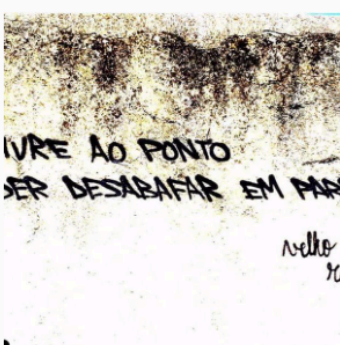 IVRE AO PONTO
DER DESABAFAR EM PAR
velho